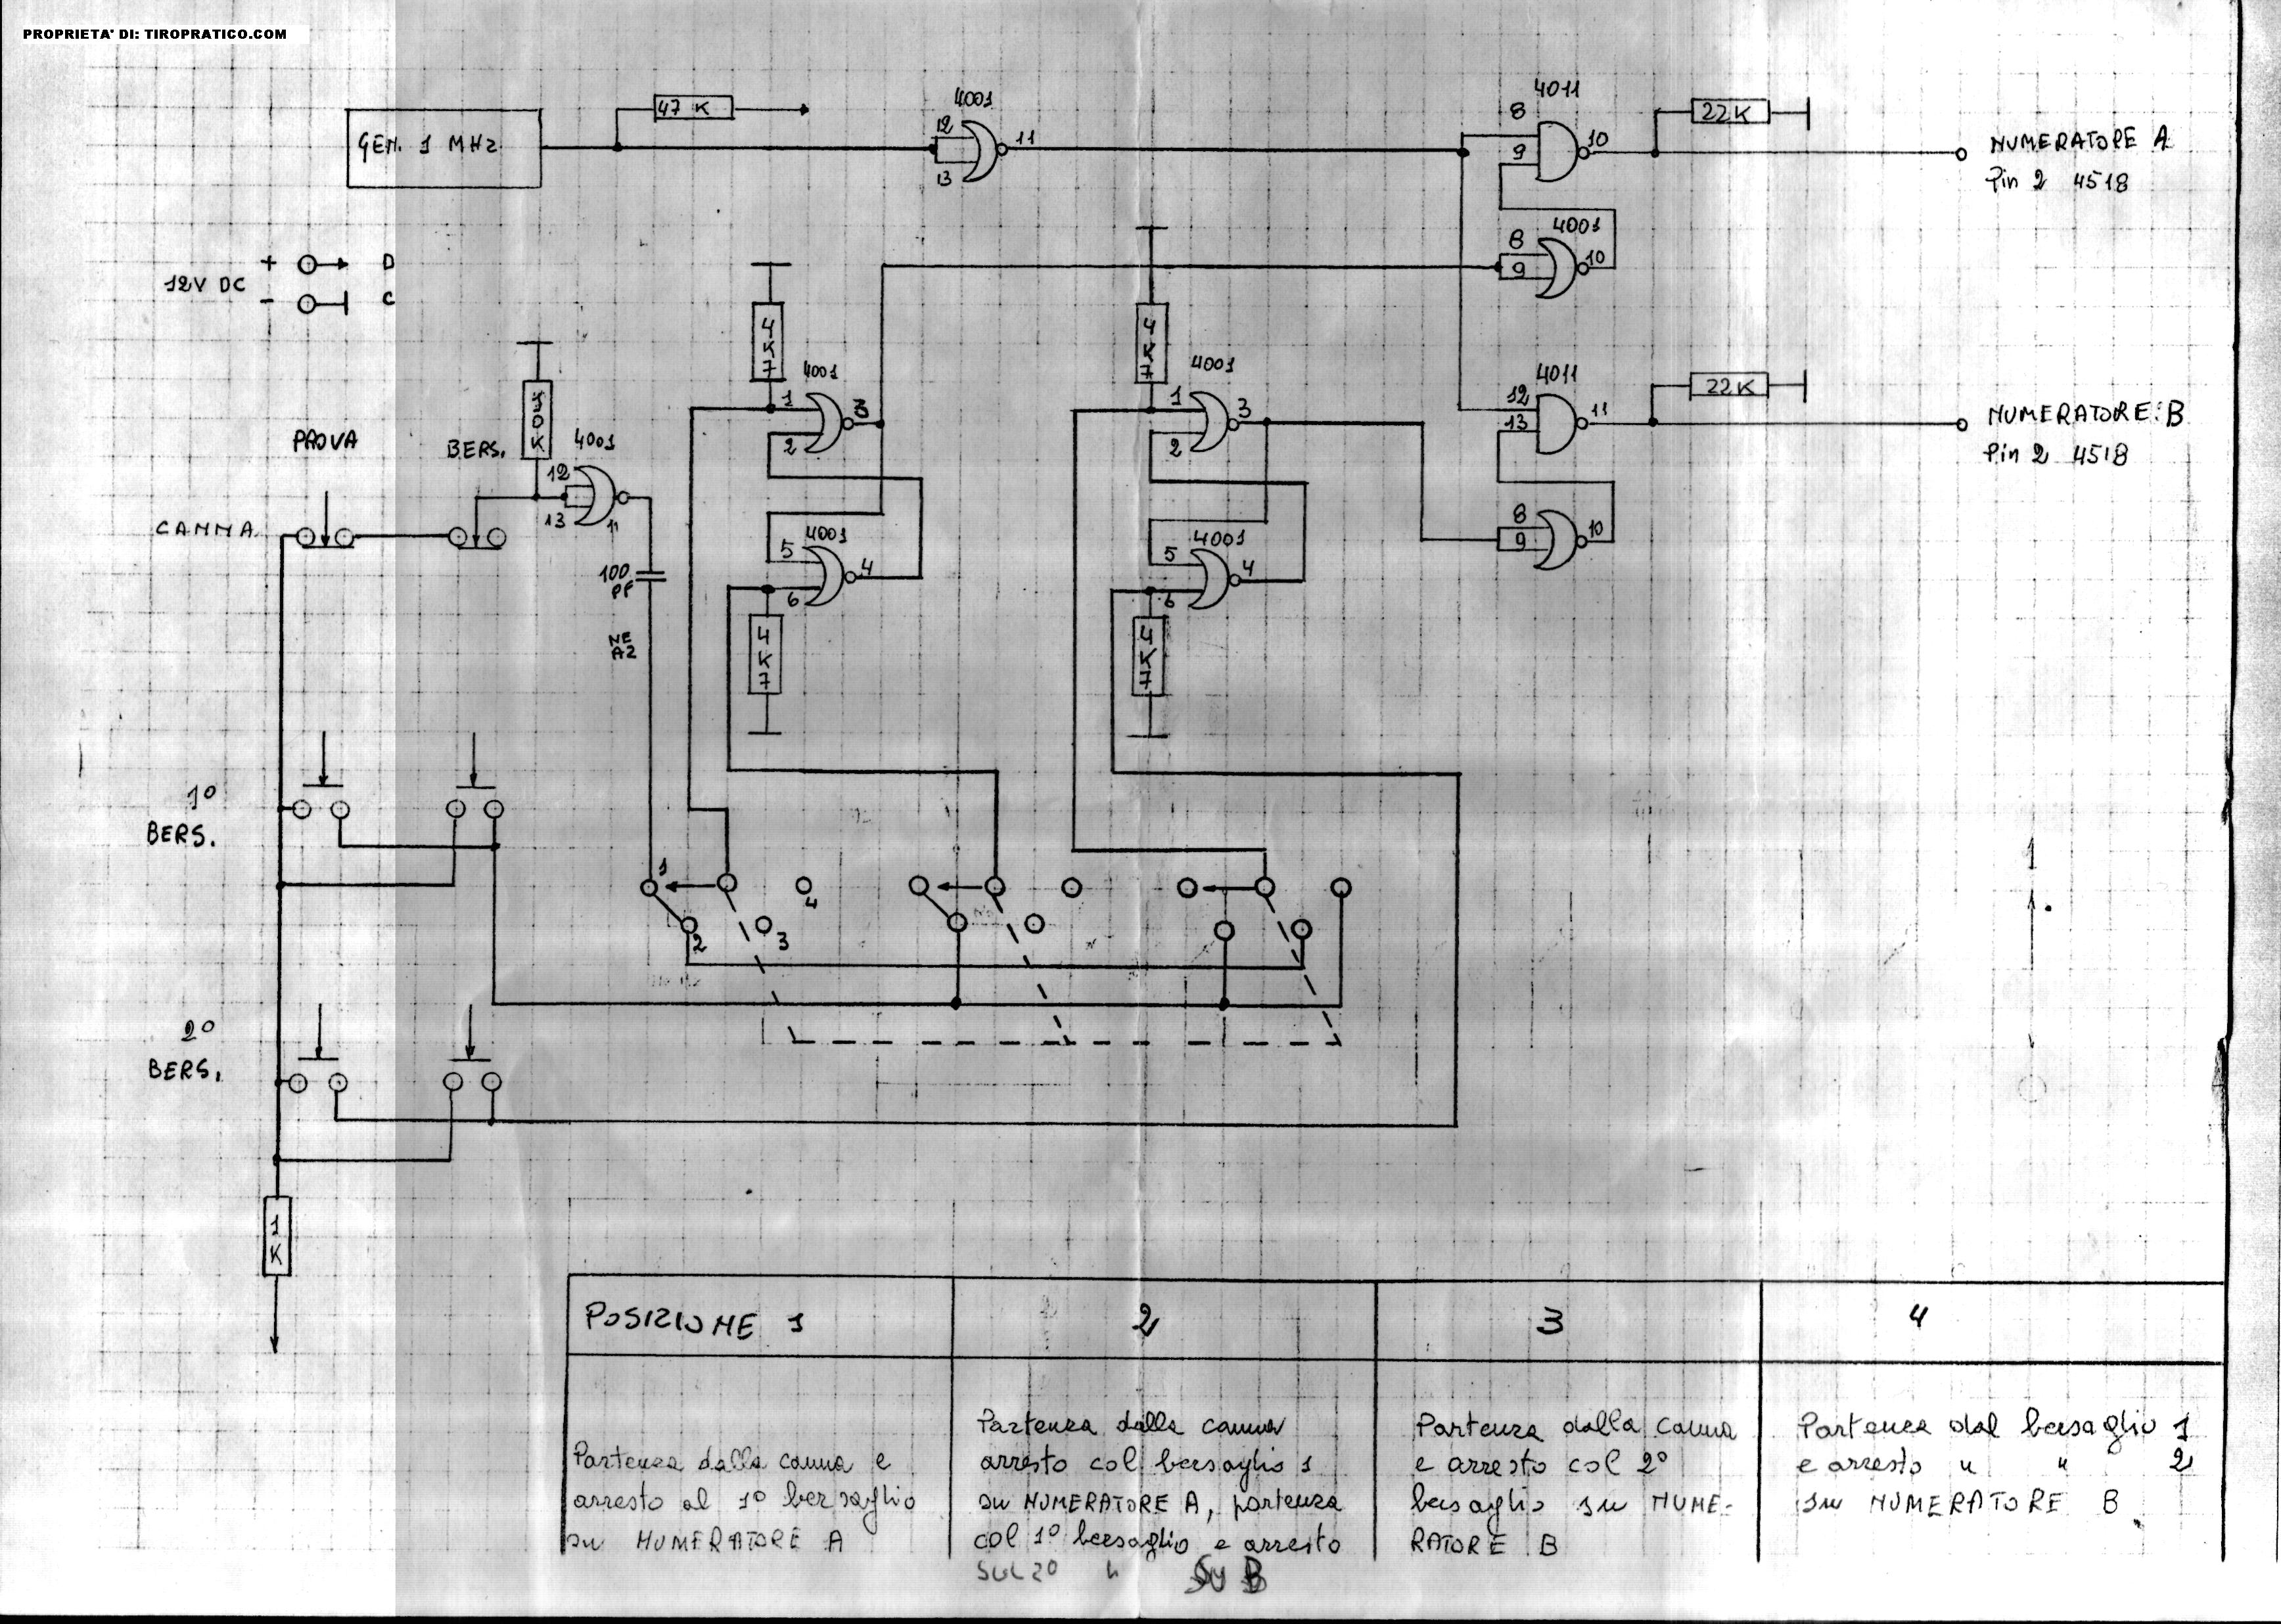 PROPRIETA' DI: TIROPRATICO.COM
GEN. 1 MHz
47 K
4001
12
13
11
4011
8
9
10
22K
NUMERATORE A
Pin 2 4518
4001
8
9
10
12V DC
+
D
-
C
4K7
4001
1
2
3
4K7
4001
1
2
3
4011
12
13
11
22K
NUMERATORE B
Pin 2 4518
PROVA
BERS.
4001
12
13
11
CANNA
100
PF
4001
5
6
4
4K7
4001
5
6
4
4K7
8
9
10
1°
BERS.
1
2
3
4
2°
BERS.
1K
POSIZIONE 1
2
3
4
Partenza dalla canna e
arresto al 1° bersaglio
su NUMERATORE A
Partenza dalla canna
arresto col bersaglio 1
su NUMERATORE A, partenza
col 1° bersaglio e arresto
SUL 2° " SU B
Partenza dalla canna
e arresto col 2°
bersaglio su NUME-
RATORE B
Partenza dal bersaglio 1
e arresto " " 2
su NUMERATORE B